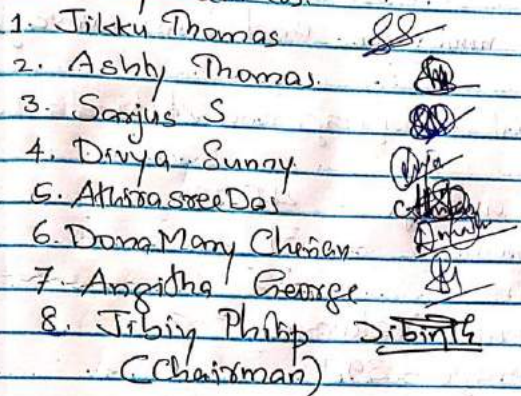 1. Jikku Thomas
2. Ashly Thomas.
3. Sarjus S
4. Divya Sunny
5. Athirasree Das
6. Dona Mary Cherian
7. Angitha George
8. Jibin Philip Jibin
(Chairman)